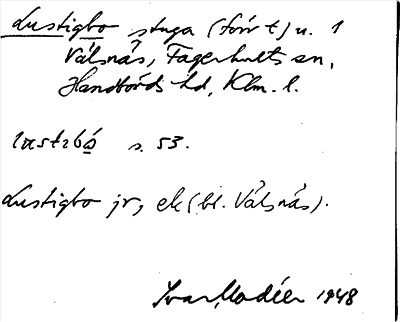 Lustigbo stuga (förr t) u. 1
Välsnäs, Fagerhults sn,
Handbörds hd, Klm. l.
lustıbo s. 53.
Lustigbo jr, ek (bl. Välsnäs).
Ivar Modéer 1948